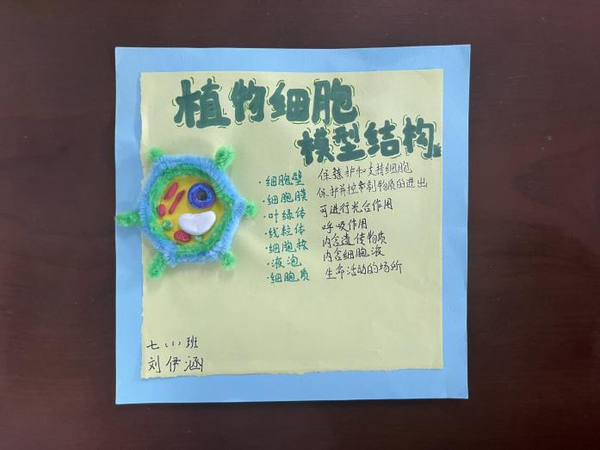 植物细胞
模型结构
·细胞壁 保护和支持细胞
·细胞膜 保护并控制物质的进出
·叶绿体 可进行光合作用
·线粒体 呼吸作用
·细胞核 内含遗传物质
·液泡 内含细胞液
·细胞质 生命活动的场所
七、(1)班
刘伊涵